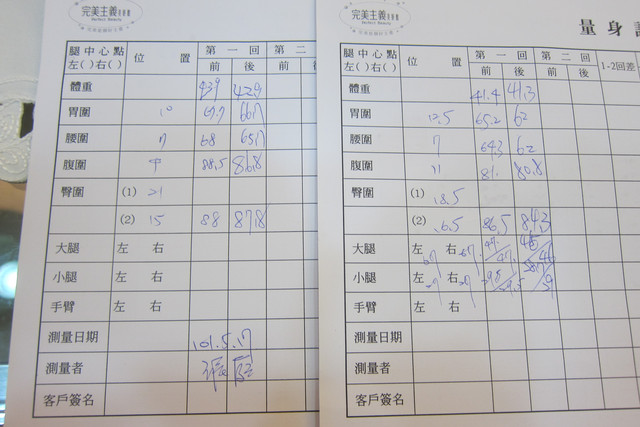 完美主義
Perfect Beauty
腿中心點 位 置 第一回 第二
左( )右( ) 前 後 前
體重 43.9 42.9
胃圍 66.7
腰圍 7 68 65.7
腹圍 88.5 86.8
臀圍 (1) 21
(2) 15 88 87.8
大腿 左 右
小腿 左 右
手臂 左 右
測量日期 101.5.17
測量者
客戶簽名
完美主義
Perfect Beauty
量身
腿中心點 位 置 第一回 第二回 1-2回差
左( )右( ) 前 後 前 後
體重 41.4 41.3
胃圍 12.5 65.2 62
腰圍 7 64.3 62
腹圍 11 81. 80.8
臀圍 (1) 18.5
(2) 16.5 86.5 84.3
大腿 左 右
小腿 左 右
手臂 左 右
測量日期
測量者
客戶簽名